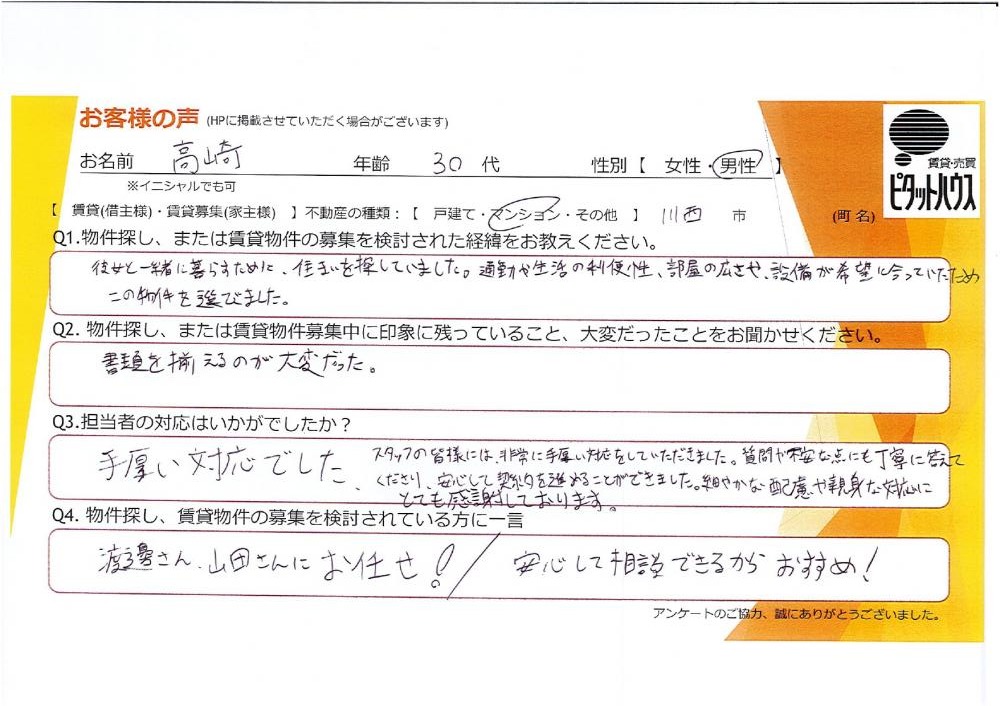 お客様の声 (HPに掲載させていただく場合がございます)
お名前 高崎 年齢 30 代 性別【 女性・男性 】
※イニシャルでも可
賃貸・売買
ピタットハウス
【 賃貸(借主様)・賃貸募集(家主様) 】不動産の種類：【 戸建て・マンション・その他 】 川西 市 (町名)
Q1.物件探し、または賃貸物件の募集を検討された経緯をお教えください。
彼女と一緒に暮らすために、住まいを探していました。通勤や生活の利便性、部屋の広さや、設備が希望に合っていたため
この物件を選びました。
Q2. 物件探し、または賃貸物件募集中に印象に残っていること、大変だったことをお聞かせください。
書類を揃えるのが大変だった。
Q3.担当者の対応はいかがでしたか？
手厚い対応でした、
スタッフの皆様には、非常に手厚い対応をしていただきました。質問や不安な点にも丁寧に答えて
くださり、安心して契約を進めることができました。細やかな配慮や親身な対応に
とても感謝しております。
Q4. 物件探し、賃貸物件の募集を検討されている方に一言
渡邊さん、山田さんにお任せ！／安心して相談できるからおすすめ！
アンケートのご協力、誠にありがとうございました。